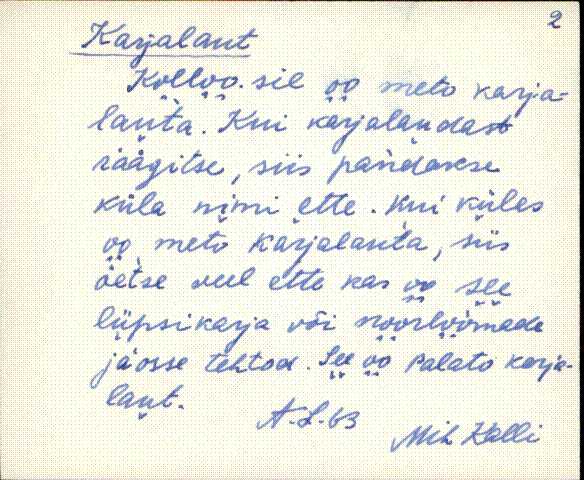 2
Karjalaut
Kolloo.sil oo meto karja-
lauta. Kui karjalaudast
räägitse, siis pandasse
küla nimi ette. Kui küles
oo meto karjalauta, siis
öetse veel ette kas oo see
lüpsikarja või noorloomade
jäosse tehtod. See oo Palato karja-
laut.
A.L.63
Mih Kalli